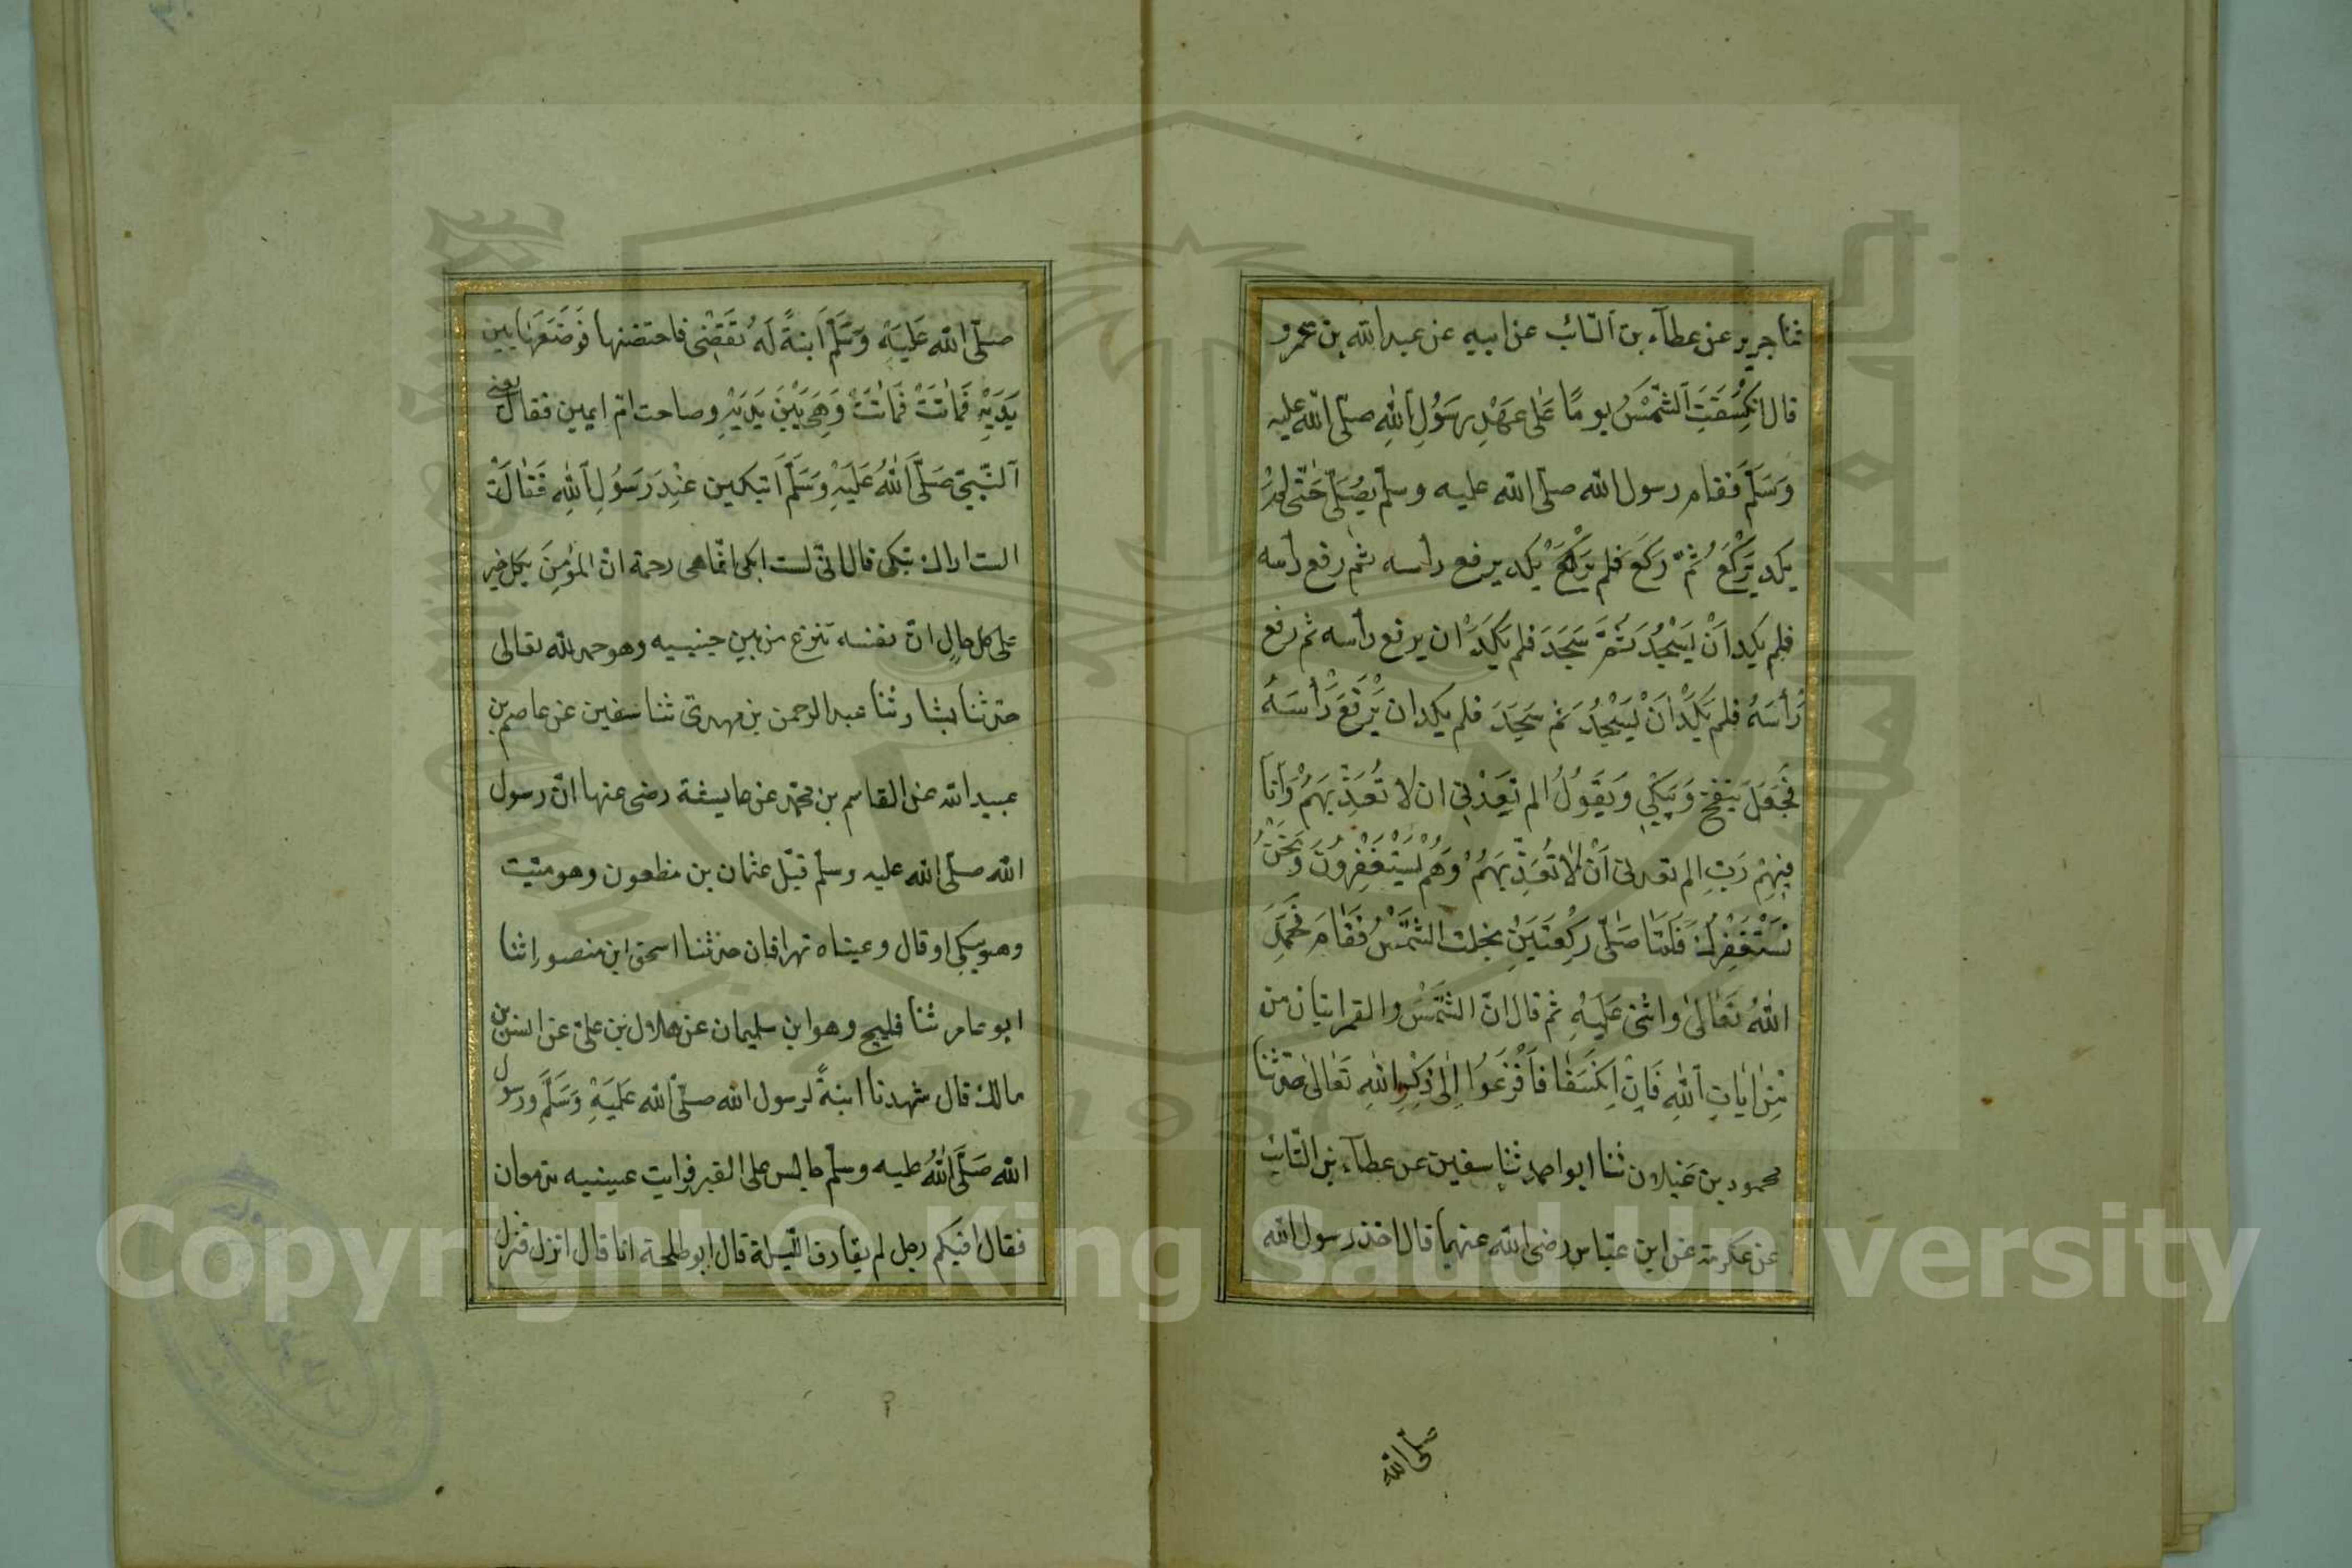 ثنا جرير عن عطآء بن السّائب عن ابيه عن عبد الله بن عمرو
قال انكَسَفَتِ الشَّمْسُ يومًا عَلٰى عَهْدِ رَسُولِ اللهِ صلّى الله عليه
وَسَلَّمَ فقام رسول الله صلّى الله عليه وسلّم يُصَلِّى حَتّٰى لَمْ
يكد يَرْكَعُ ثُمَّ رَكَعَ فلم يكد يرفع رأسه ثم رفع رأسه
فلم يكد اَنْ يَسْجُدَ ثُمَّ سَجَدَ فلم يَكَدْ ان يرفع رأسه ثم رفع
رَأْسَهُ فلم يَكَدْ اَنْ يَسْجُدَ ثم سَجَدَ فلم يكد ان يَرْفَعَ رَأْسَهُ
فَجَعَلَ ينفخ وَيَبْكِي وَيَقُولُ الم تَعِدْنِى ان لا تُعَذِّبَهُمْ وَاَنَا
فِيهِمْ رَبِّ الم تعدنى اَنْ لَا تُعَذِّبَهُمْ وَهُمْ يَسْتَغْفِرُونَ وَنَحْنُ
نَسْتَغْفِرُكَ فَلَمَّا صَلّٰى رَكْعَتَيْنِ نجلت الشَّمْسُ فَقَامَ فَحَمِدَ
اللهَ تَعَالٰى واثنى عَلَيْهِ ثم قال انّ الشَّمْسَ والقمر ايتان من
مِنْ اٰيَاتِ اللهِ فَاِنِ اِنْكَسَفَا فَافْزَعُوا اِلٰى ذِكْرِ اللهِ تَعَالٰى حدّثنا
محمود بن غيلان ثنا ابو احمد ثنا سفين عن عطآء بن السّائب
عن عكرمة عن ابن عبّاس رضى الله عنهما قال اخذ رسول الله
صلّى الله
صَلّى الله عَلَيْهِ وَسَلَّمَ اَبنةً لَهُ تَقْضِى فاحتضنها فَوَضَعَهَا بين
يَدَيْهِ فَمَاتَتْ فَمَاتَتْ وَهِىَ بَيْنَ يَدَيْهِ وصاحت امّ ايمين فقال يعنى
اَلنَّبِىَّ صَلَّى اللهُ عَلَيْهِ وَسَلَّمَ اَتبكين عِنْدَ رَسُولِ اللهِ فَقَالَتْ
الست اراك تبكى قال انّى لست ابكى انّما هى رحمة انّ المؤمِنَ بكل خير
على كل حالٍ انّ نفسه تنزع من بين جنبيه وهو حمد الله تعالى
حدّثنا بشار ثنا عبد الرحمن بن مهدىّ ثنا سفين عن عاصم بن
عبيد الله عن القاسم بن محمّد عن عايشة رضى عنها انّ رسول
الله صلّى الله عليه وسلّم قبّل عثمان بن مظعون وهو ميّت
وهو يبكى او قال وعيناه تهراقان حدثنا اسحق ابن منصور اثنا
ابو عامر ثنا فليح وهو ابن سليمان عن هلال بن علىّ عن انس بن
مالك قال شهدنا ابنةً لرسول الله صلّى الله عَلَيْهِ وَسَلَّمَ ورسول
الله صَلَّى اللهُ عليه وسلّم جالس على القبر فرايت عينيه تدمعان
فقال افيكم رجل لم يقارف اللّيلة قال ابو طلحة انا قال انزل فنزل
Copyright © King Saud University
1957